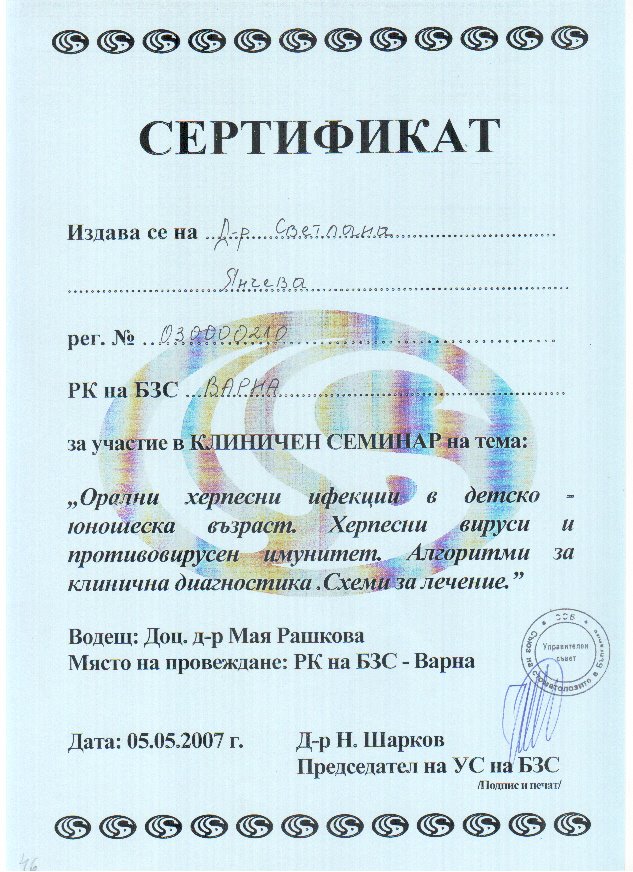 СЕРТИФИКАТ
Издава се на Д-р Светлана
Янчева
рег. № 030000210
РК на БЗС ВАРНА
за участие в КЛИНИЧЕН СЕМИНАР на тема:
„Орални херпесни ифекции в детско -
юношеска възраст. Херпесни вируси и
противовирусен имунитет. Алгоритми за
клинична диагностика .Схеми за лечение.”
Водещ: Доц. д-р Мая Рашкова
Място на провеждане: РК на БЗС - Варна
Управителен
съвет
Съюз на стоматолозите в България
Дата: 05.05.2007 г. Д-р Н. Шарков
Председател на УС на БЗС
/Подпис и печат/
46